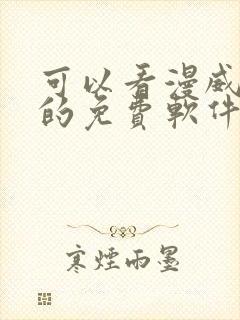 可以看漫威
的免費軟件
寒煙雨墨